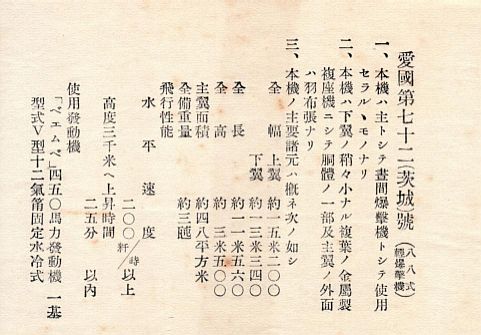 愛國第七十二(茨城)號 (八八式輕爆擊機)
一、本機ハ主トシテ晝間爆擊機トシテ使用
セラルヽモノナリ
二、本機ハ下翼ノ稍々小ナル複葉ノ金屬製
複座機ニシテ胴體ノ一部及主翼ノ外面
ハ羽布張ナリ
三、本機ノ主要諸元ハ概ネ次ノ如シ
全幅 上翼 約一五米二〇〇
下翼 約一三米三四〇
全長 約一一米五六〇
全高 約三米五〇〇
主翼面積 約四八平方米
全備重量 約三瓲
飛行性能
水平速度 二〇〇粁/時以上
高度三千米へ上昇時間
二五分以內
使用發動機
「ベエムベ」四五〇馬力發動機 一基
型式V型十二氣筩固定水冷式